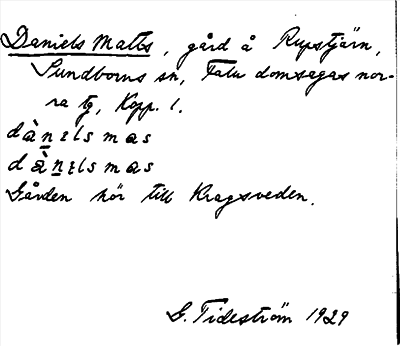 Daniels Matts, gård å Rupstjärn,
Sundborns sn, Falu domsagas nor-
ra tg, Kopp. l.
dà̀nɩls mas
dà̀nɩls mas
Gården hör till Kragsveden.
G. Tideström 1929